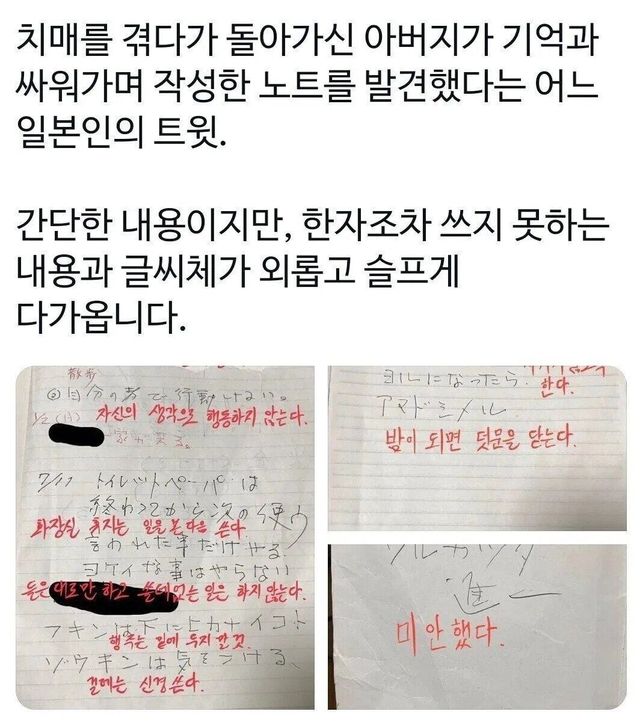 치매를 겪다가 돌아가신 아버지가 기억과
싸워가며 작성한 노트를 발견했다는 어느
일본인의 트윗.
간단한 내용이지만, 한자조차 쓰지 못하는
내용과 글씨체가 외롭고 슬프게
다가옵니다.
散歩
◎自分の考で行動しない。
1/2 (月) 자신의 생각으로 행동하지 않는다.
が来る。
7/17 トイレットペーパーは
終わってから次の便ウ
화장실 휴지는 일을 본 다음 쓴다
言われた事だけやる
ヨケイな事はやらない
들은 대로만 하고 쓸데없는 일은 하지 않는다.
フキンは下にヒカナイコト
행주는 밑에 두지 말 것.
ゾウキンは気をつける、
걸레는 신경쓴다.
ヨルになったら
한다.
アマドシメル
밤이 되면 덧문을 닫는다.
進一
미안했다.